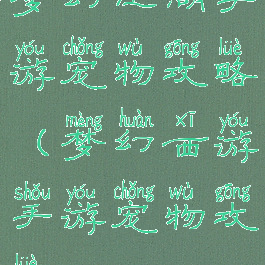 yóu chǒng wù gōng lüè
游宠物攻略
mèng huàn xī yóu
(梦幻西游
shǒu yóu chǒng wù gōng
手游宠物攻
lüè